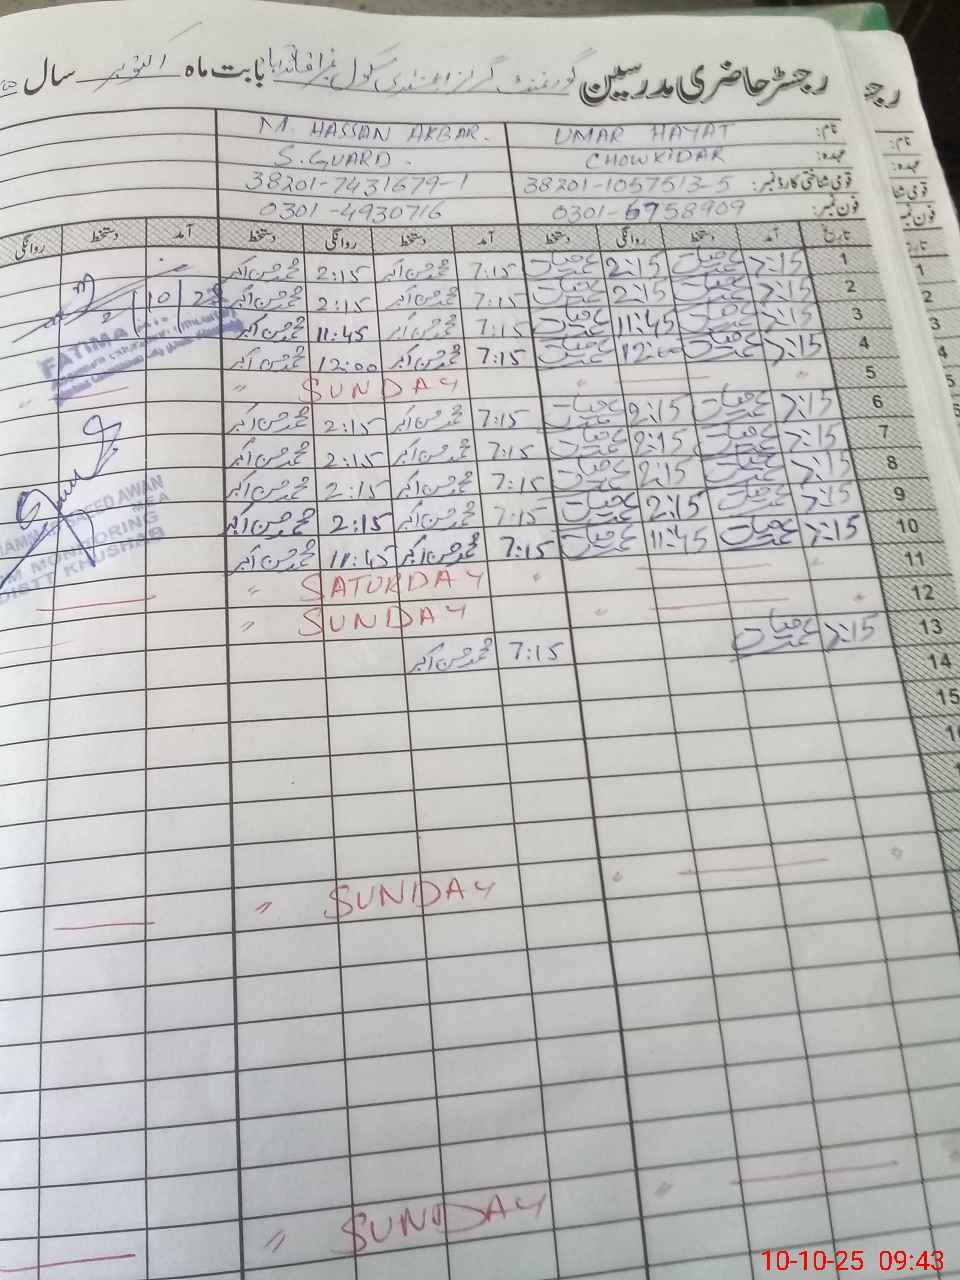 رجسٹر حاضری مدرسین گورنمنٹ گرلز سکول بابت ماہ اکتوبر سال
نام: UMAR HAYAT M. HASSAN AKBAR.
عہدہ: CHOWKIDAR S. GUARD.
قومی شناختی کارڈ نمبر: 38201-1057513-5 38201-7431679-1
فون نمبر: 0301-6958909 0301-4930716
تاریخ آمد دستخط روانگی دستخط آمد دستخط روانگی دستخط آمد دستخط روانگی
1 7:15 عمر حیات 2:15 عمر حیات 7:15 محمد حسن اکبر 2:15 محمد حسن اکبر
2 7:15 عمر حیات 2:15 عمر حیات 7:15 محمد حسن اکبر 2:15 محمد حسن اکبر
3 7:15 عمر حیات 11:45 عمر حیات 7:15 محمد حسن اکبر 11:45 محمد حسن اکبر
4 7:15 عمر حیات 12:00 عمر حیات 7:15 محمد حسن اکبر 12:00 محمد حسن اکبر
5 " " SUNDAY "
6 7:15 عمر حیات 2:15 عمر حیات 7:15 محمد حسن اکبر 2:15 محمد حسن اکبر
7 7:15 عمر حیات 2:15 عمر حیات 7:15 محمد حسن اکبر 2:15 محمد حسن اکبر
8 7:15 عمر حیات 2:15 عمر حیات 7:15 محمد حسن اکبر 2:15 محمد حسن اکبر
9 7:15 عمر حیات 2:15 عمر حیات 7:15 محمد حسن اکبر 2:15 محمد حسن اکبر
10 7:15 عمر حیات 11:45 عمر حیات 7:15 محمد حسن اکبر 11:45 محمد حسن اکبر
11 " " SATURDAY "
12 " " SUNDAY "
13 7:15 عمر حیات 7:15 محمد حسن اکبر
14
15
" " SUNDAY "
" " SUNDAY "
2/10/25
FATIMA
SAEED AWAN
MEA
MONITORING
DISTT KHUSHAB
10-10-25 09:43